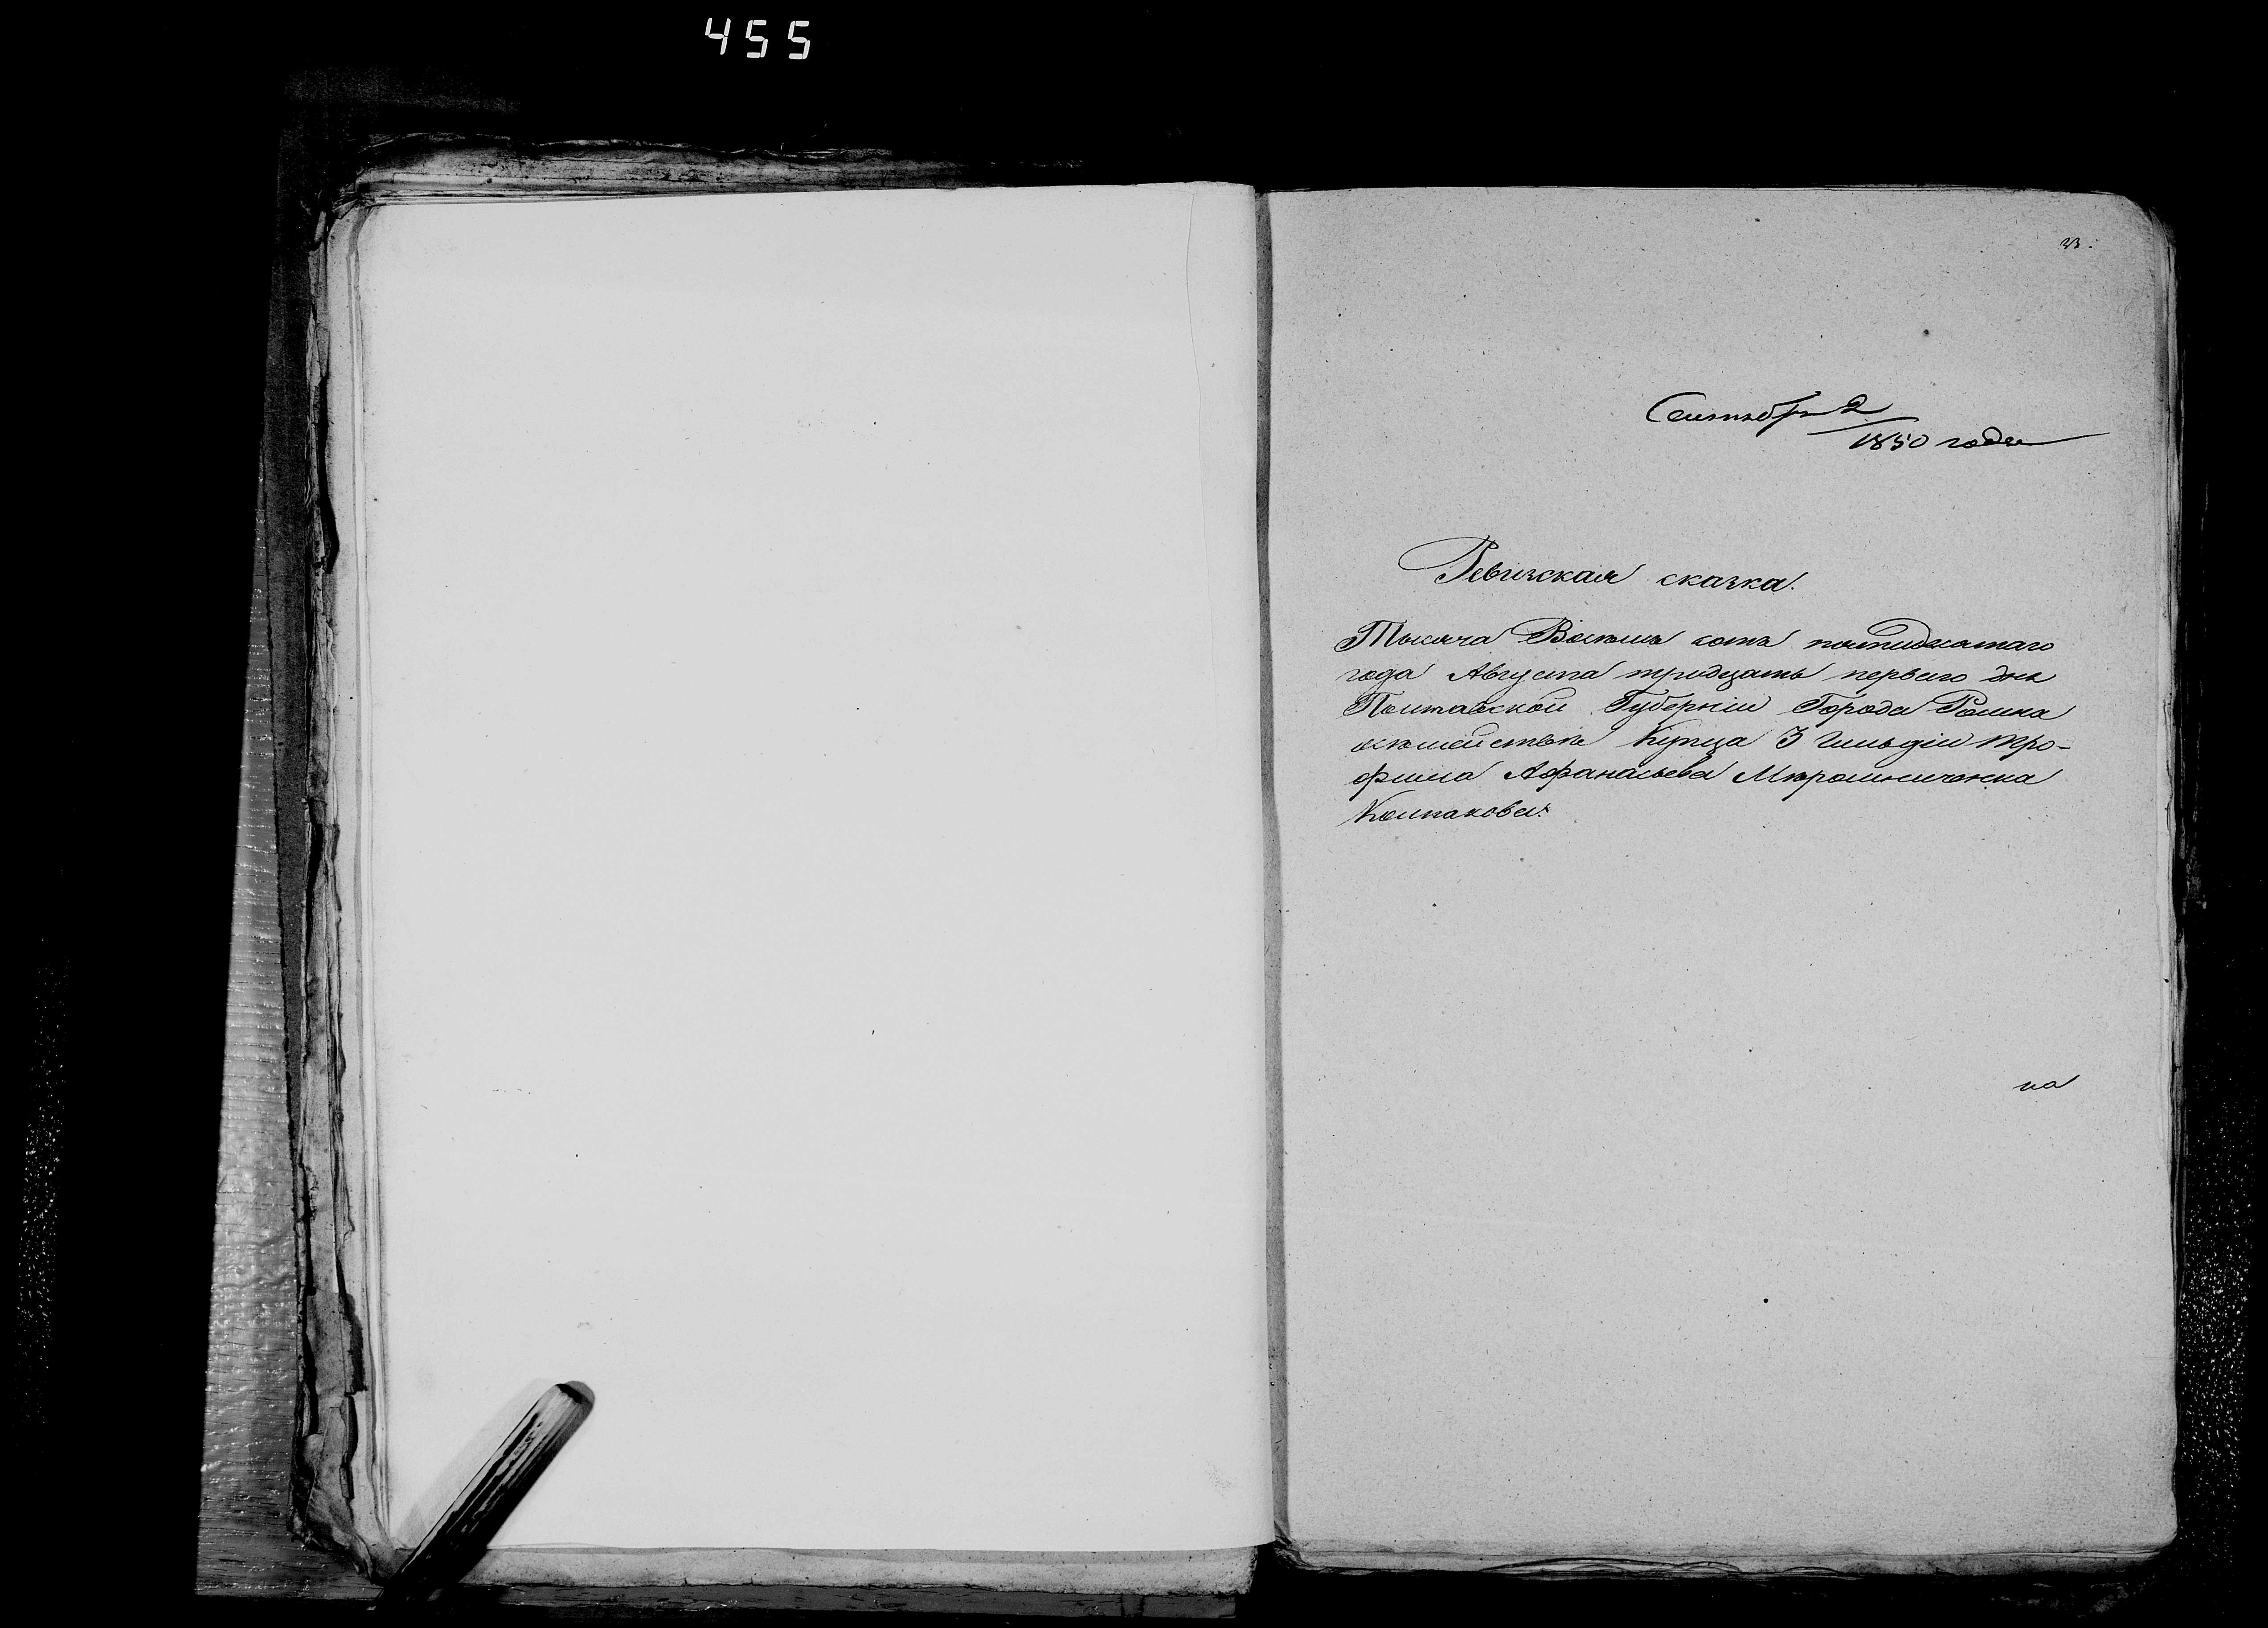 455
23.
Сентябр 2
1850 года
Ревизская сказка.
Тысяча Восемь сотъ пятидесятаго
года Августа тридцать перваго дня
Полтавской Губерніи Города Ромна
осемействѣ Купца 3 Гильдіи Тро-
фима Афанасьева Мирошниченка
Колпакова.
на